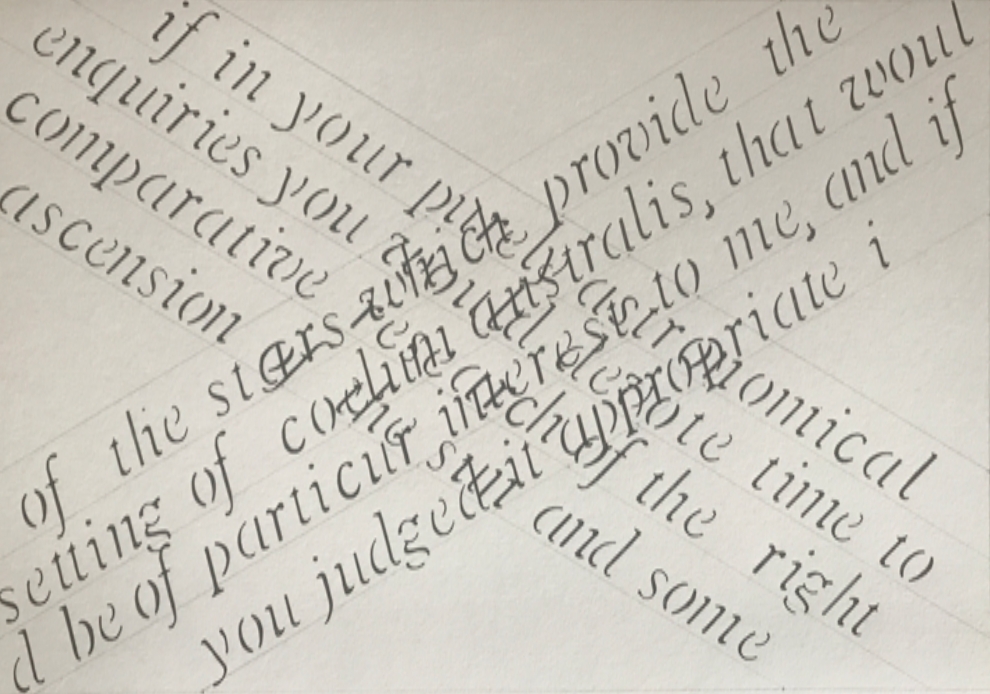 if in your purely astronomical
enquiries you could devote time to
comparative of the right
ascension and some
of the stars which provide the
setting of coelum australis, that woul
d be of particular interest to me, and if
you judged it appropriate i